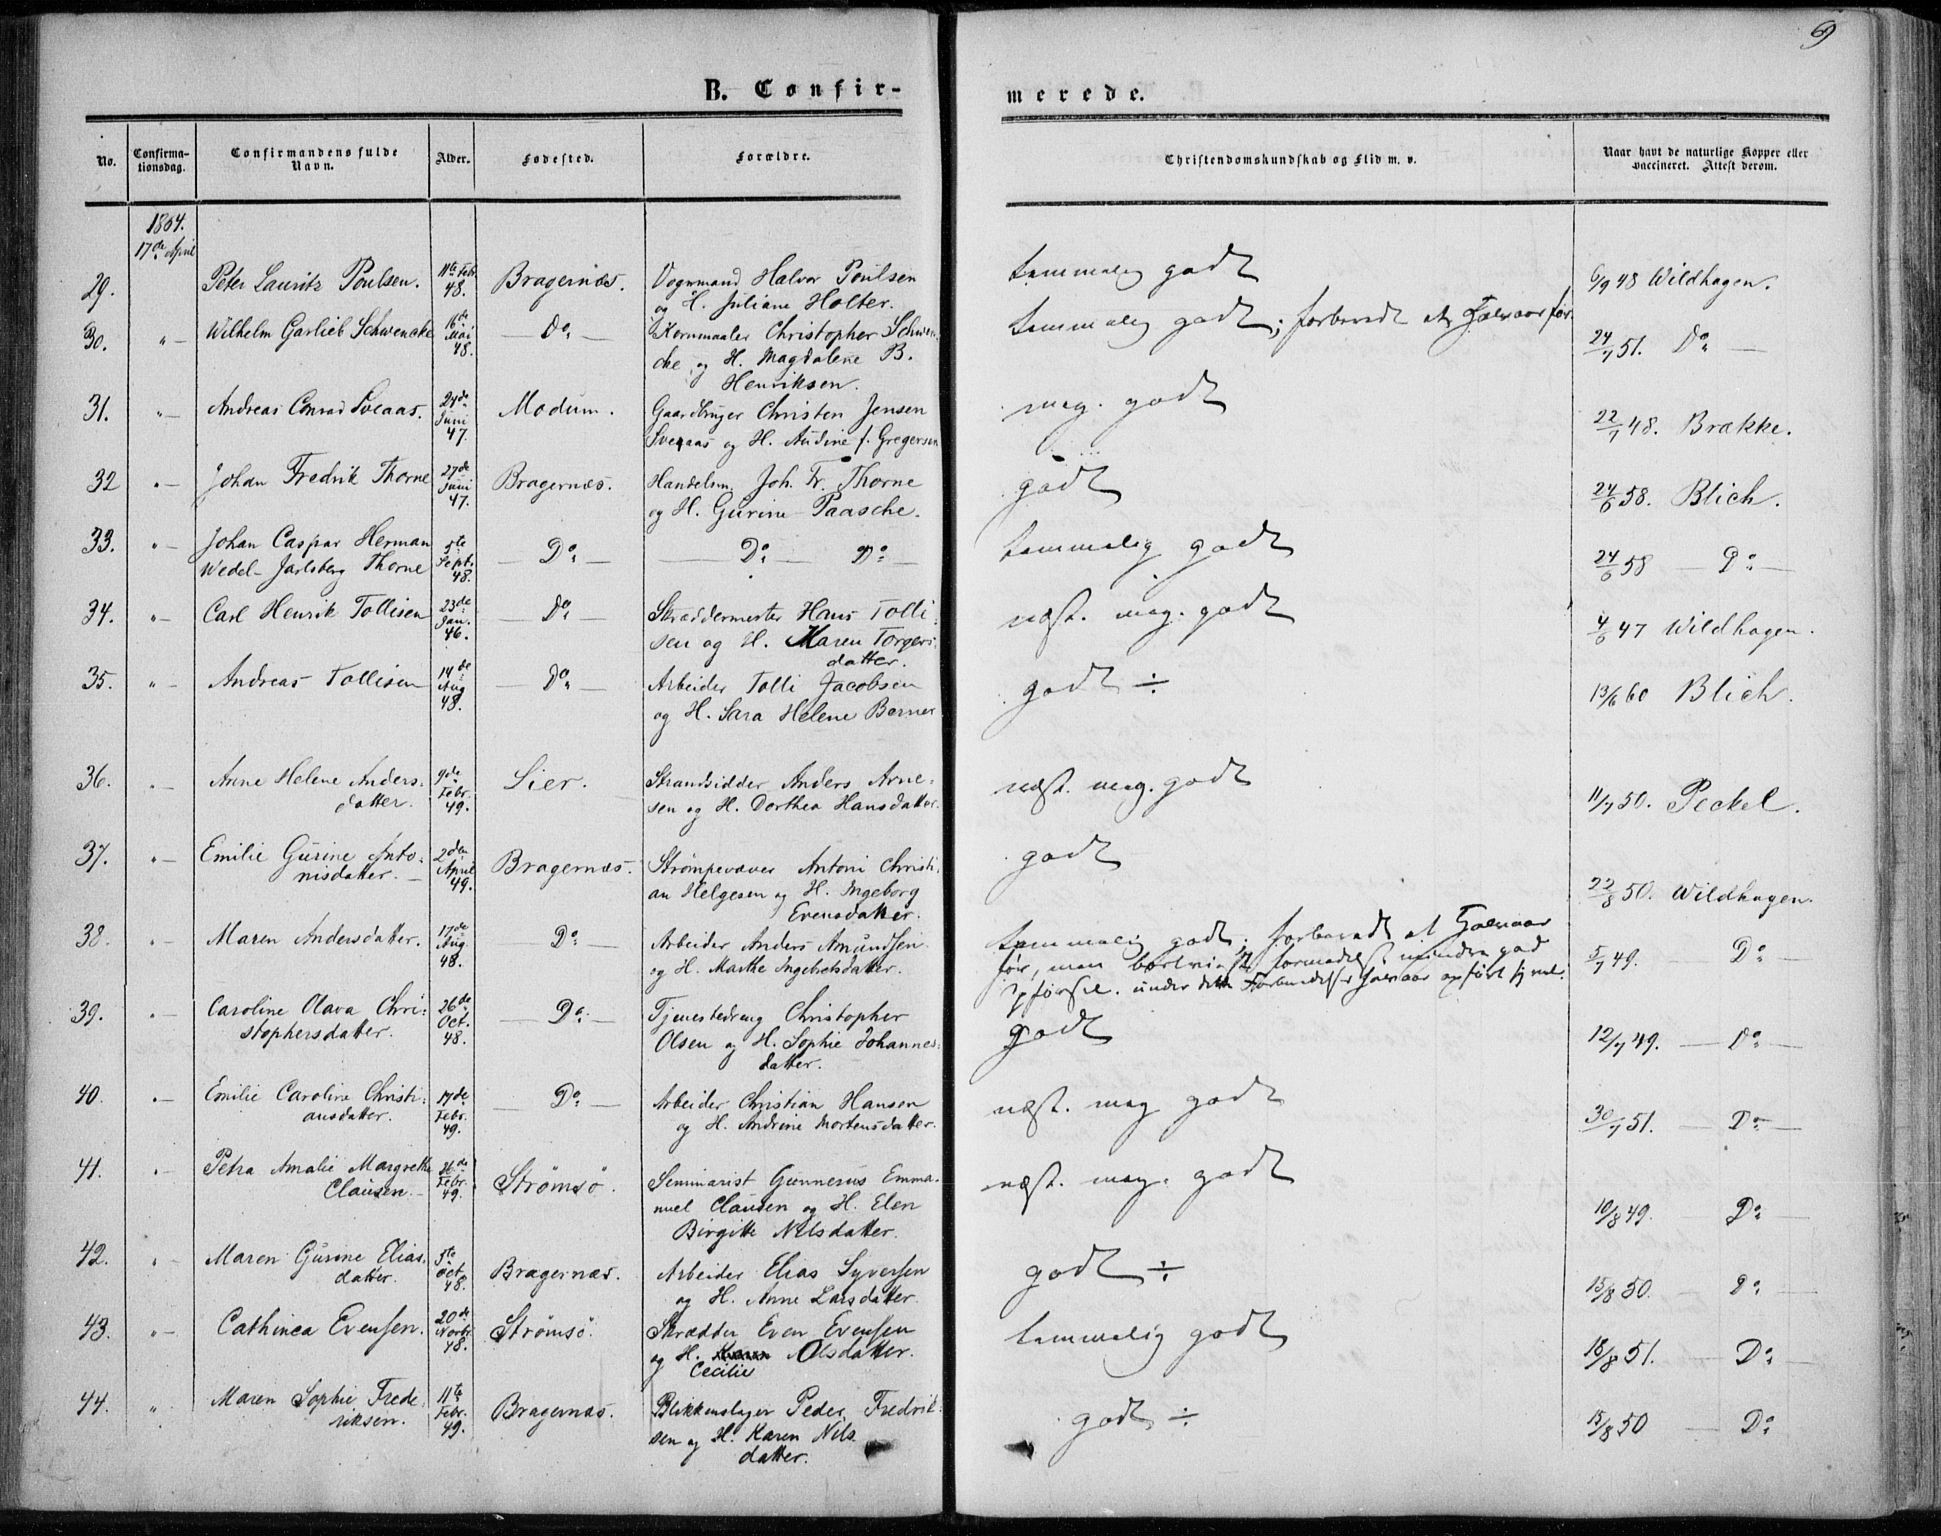 9
B. Confirmerede.
No. Confirmationsdag. Confirmandens fulde Navn. Alder. Fødested. Forældre. Christendomskundskab og Flid m. v. Naar havt de naturlige Kopper eller vaccineret. Attest derom.
1864.
17de April
29. Peter Lauritz Poulsen. 11te Febr. 48. Bragernæs. Vogmand Halvor Poulsen
og H. Juliane Holter. temmelig godt 6/9 48 Wildhagen.
30. " Wilhelm Garlieb Schwencke 16de Mai 48. Do Kornmaaler Christopher Schwen-
cke og H. Magdalene B.
Henriksen. temmelig godt; forberedt et Halvaar før. 24/7 51. Do
31. " Andreas Conrad Sveaas. 24de Juni 47. Modum. Gaardbruger Christen Jensen
Sveaas og H. Audine f. Gregersen meg. godt 22/7 48. Brakke.
32 " Johan Fredrik Thorne 27de Juni 47. Bragernæs. Handelsm. Joh. Fr. Thorne
og H. Gurine Paasche. godt 24/6 58. Blich.
33. " Johan Caspar Herman
Wedel-Jarlsberg Thorne 5te Sept. 48. Do Do Do temmelig godt 24/6 58 Do
34. " Carl Henrik Tollisen 23de Jan. 46. Do Skræddermester Hans Tolli-
sen og H. Maren Torgers-
datter. næst. meg. godt 4/6 47 Wildhagen.
35. " Andreas Tollisen 14de Aug 48. Do Arbeider Tolli Jacobsen
og H. Sara Helene Berner godt ÷ 13/6 60 Blich.
36. " Anne Helene Anders-
datter. 9de Febr. 49. Lier. Strandsidder Anders Arne-
sen og H. Dorthea Hansdatter. næst. meg. godt 11/7 50. Peckel.
37. " Emilie Gurine Anto-
nisdatter. 2den April 49. Bragernæs. Strømpevæver Antoni Christi-
an Helgesen og H. Ingeborg
Evensdatter. godt 22/8 50. Wildhagen.
38. " Maren Andersdatter. 17de Aug. 48. Do Arbeider Anders Amundsen
og H. Marthe Ingebretsdatter. temmelig godt; forberedt et Halvaar
før, men bortvist formedelst mindre god
Opførsel. under dette Forberedelses Halvaar opført sig vel. 5/7 49. Do
39. " Caroline Olava Chri-
stophersdatter. 26de Oct. 48. Do Tjenestedreng Christopher
Olsen og H. Sophie Johannes-
datter. godt 12/7 49. Do
40. " Emilie Caroline Christi-
ansdatter. 17de Febr. 49. Do Arbeider Christian Hansen
og H. Andrine Mortensdatter. næst. meg godt 30/7 51. Do
41. " Petra Amalie Margrethe
Clausen. 26de Febr. 49. Strømsö. Seminarist Gunnerus Emma-
nuel Clausen og H. Elen
Birgitte Nilsdatter. næst. meg. godt 10/8 49. Do
42. " Maren Gurine Elias-
datter. 5te Oct. 48. Bragernæs. Arbeider Elias Syversen
og H. Anne Larsdatter. godt ÷ 15/8 50. Do
43. " Cathinca Evensen. 20de Novbr. 48. Strømsö. Skrædder Even Evensen
og H. Karen Olsdatter.
Cecilie temmelig godt 18/8 51. Do
44. " Maren Sophie Frede-
riksen. 11te Febr. 49. Bragernæs. Blikkenslager Peder Fredrik-
sen og H. Karen Nils-
datter. godt ÷ 15/8 50 Do